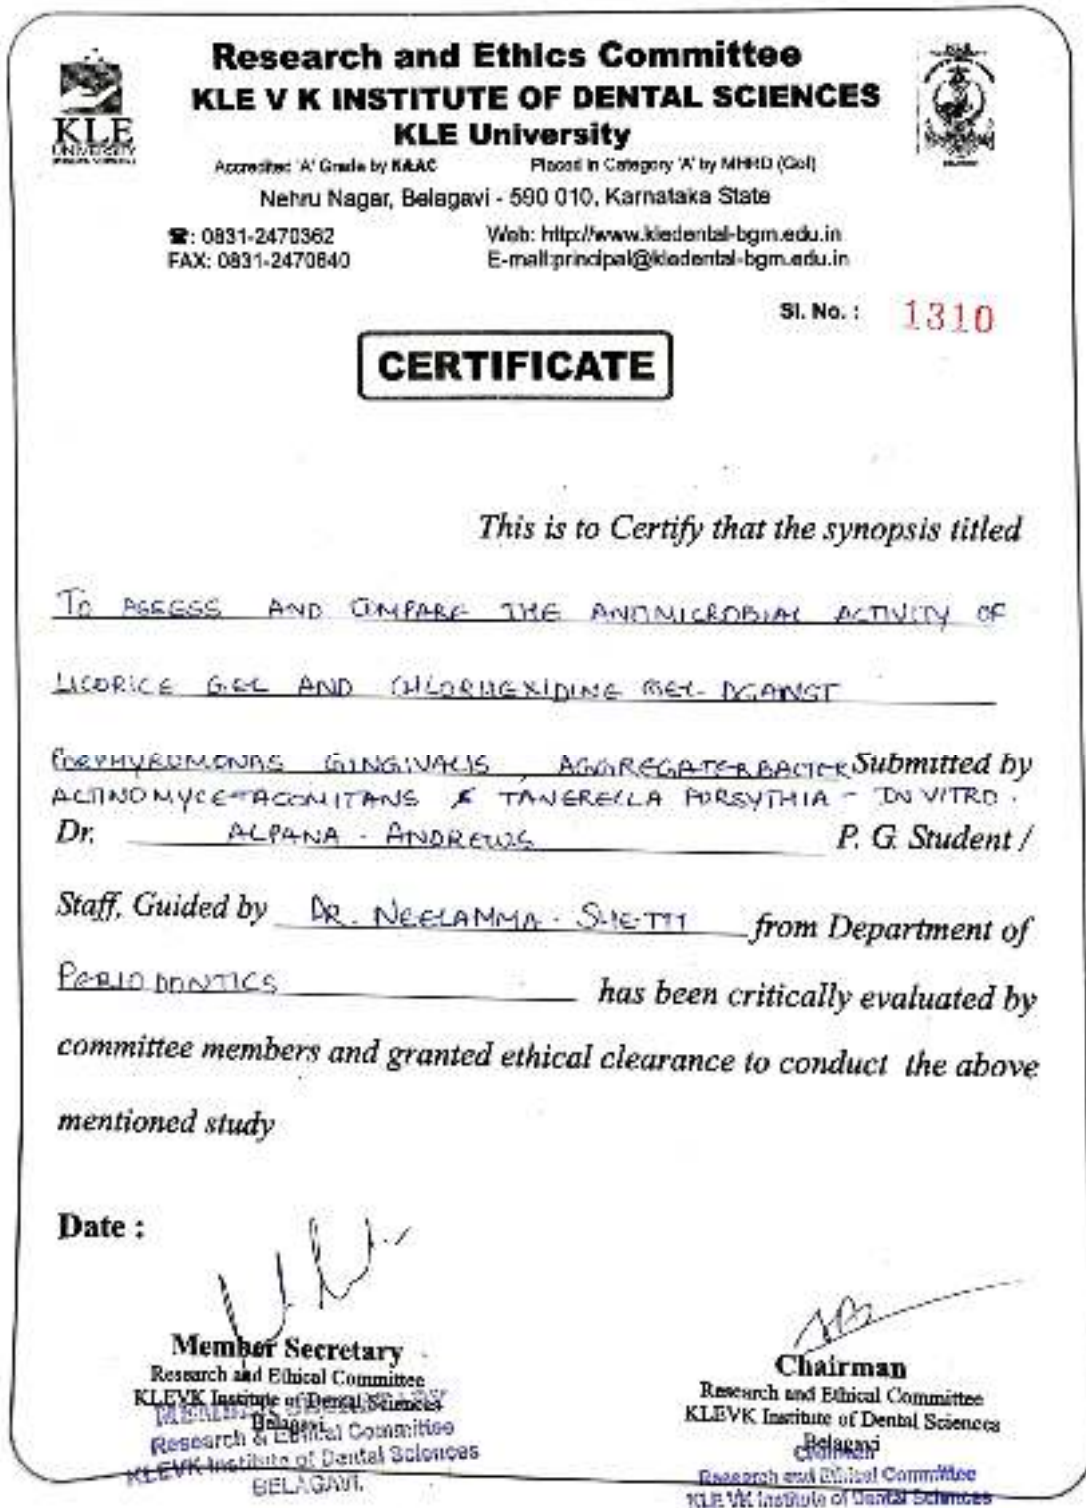 Research and Ethics Committee
KLE V K INSTITUTE OF DENTAL SCIENCES
KLE University
KLE
UNIVERSITY
Accredited 'A' Grade by NAAC Placed in Category 'A' by MHRD (GoI)
Nehru Nagar, Belagavi - 590 010, Karnataka State
☎: 0831-2470362 Web: http://www.kledental-bgm.edu.in
FAX: 0831-2470640 E-mail:principal@kledental-bgm.edu.in
Sl. No. : 1310
CERTIFICATE
This is to Certify that the synopsis titled
TO ASSESS AND COMPARE THE ANTIMICROBIAL ACTIVITY OF
LICORICE GEL AND CHLORHEXIDINE GEL AGAINST
PORPHYROMONAS GINGIVALIS, AGGREGATERBACTER Submitted by
ACTINOMYCETACOMITANS & TANERELLA FORSYTHIA - IN VITRO.
Dr. ALPANA - ANDREWS P. G. Student /
Staff, Guided by DR. NEELAMMA. SHETTI from Department of
PERIODONTICS has been critically evaluated by
committee members and granted ethical clearance to conduct the above
mentioned study
Date :
Member Secretary
Research and Ethical Committee
KLEVK Institute of Dental Sciences
Belagavi
MEMBER SECRETARY
Research & Ethical Committee
KLEVK Institute of Dental Sciences
BELAGAVI.
Chairman
Research and Ethical Committee
KLEVK Institute of Dental Sciences
Belagavi
Chairman
Research and Ethical Committee
KLE VK Institute of Dental Sciences